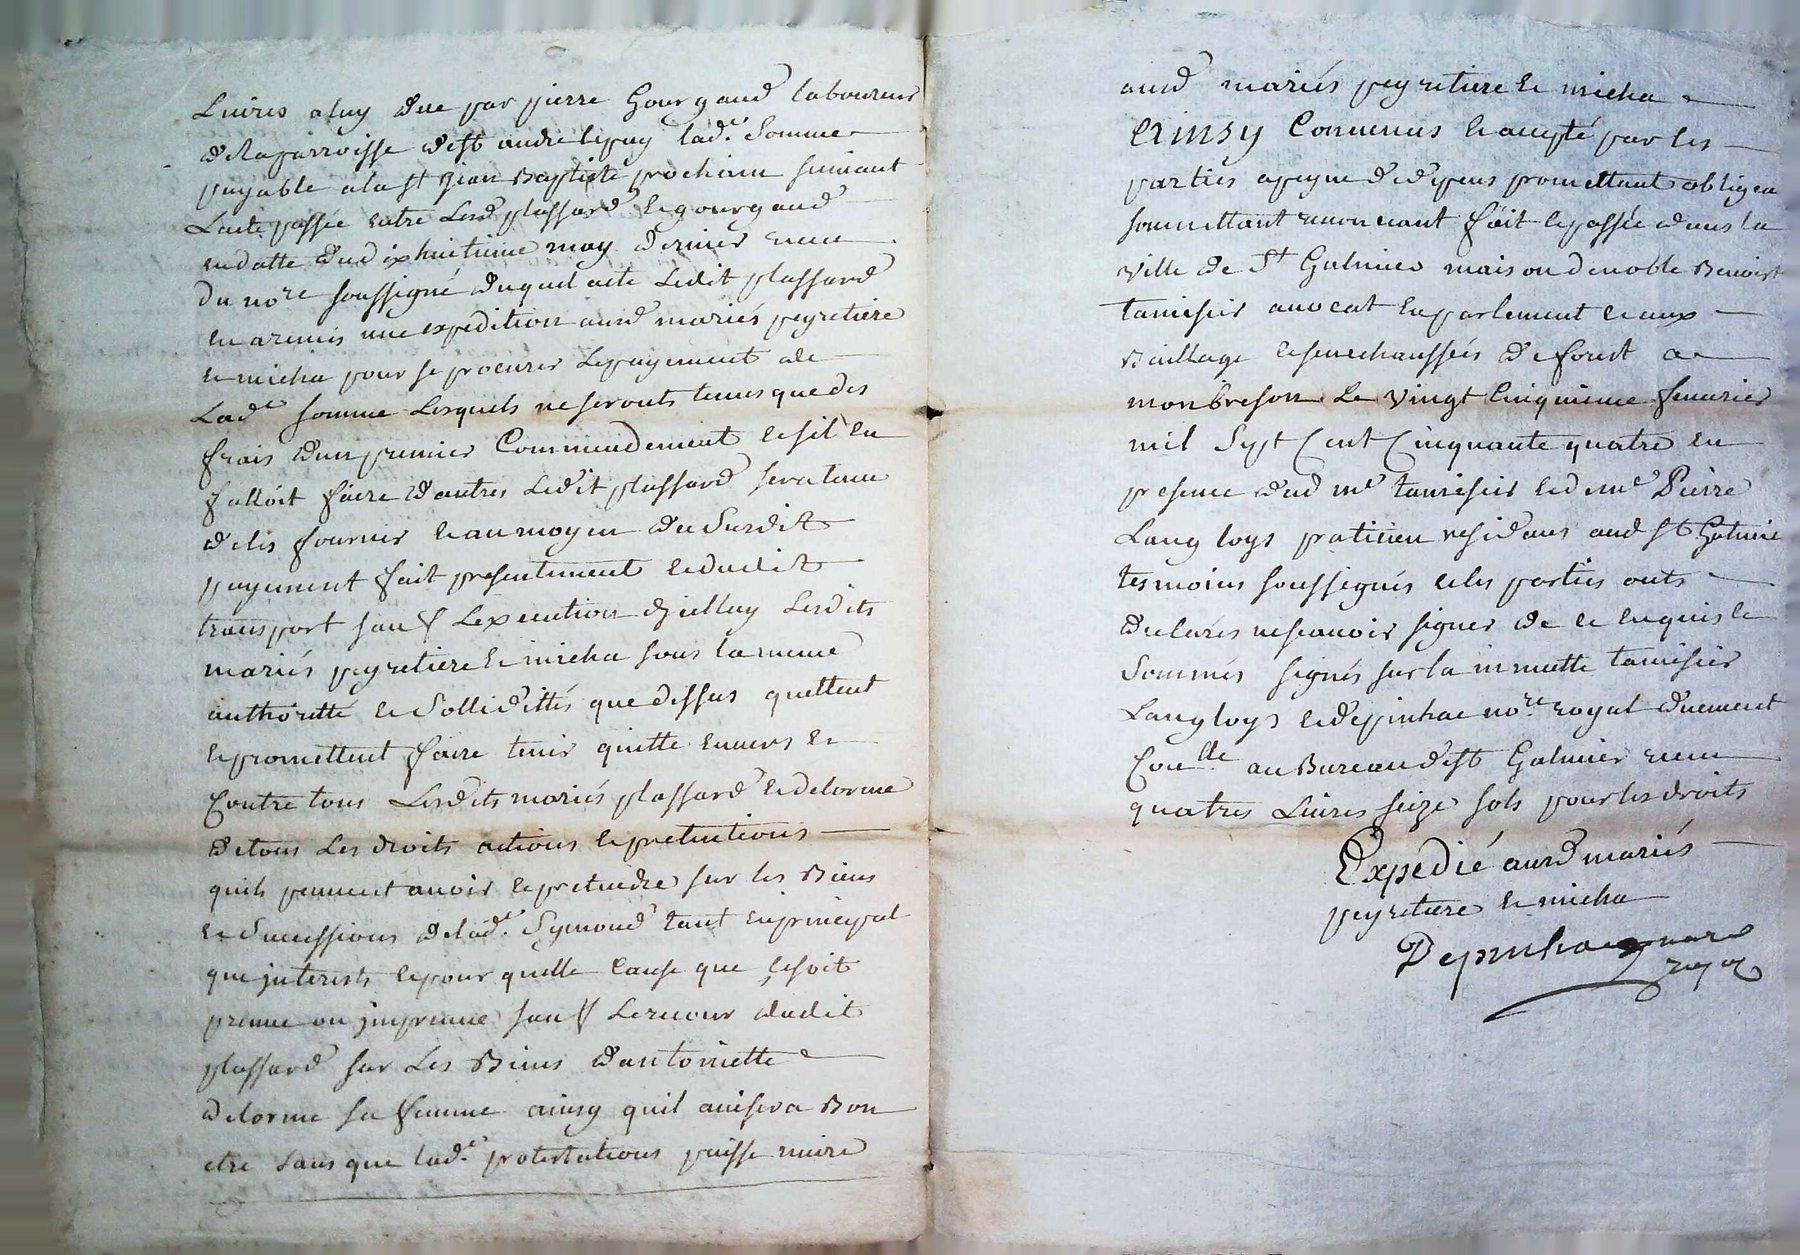 Livres a luy due par pierre Gourgaud laboureur
de la parroisse de st andre le puy lad.e Somme
payable a la st jean Baptiste prochain suivant
Lacte passée entre Lesd plassard et gourgaud
en datte du dix huitieme may dernier receu
du no.re soussigné duquel acte Ledit plassard
en a remis une expedition ausd mariés peyretiere
et micha pour se procurer Le payement de
Lad.e somme Lesquels ne seronts tenus que des
frais d'un premier Commendement et sil en
falloit faire d'autres Ledit plassard sera tenu
de les fournir et au moyen du Susdit
payement fait presentement et dudit
transport sauf L'execution d'jcelluy Lesdits
mariés peyretiere et micha sous la meme
authoritté et Sollidittés que dessus quittent
et promettent faire tenir quitte envers et
Contre tous Lesdits mariés plassard et delorme
de tous Les droits actions et pretentions
quils peuvent avoir et pretendre sur les Biens
et Successions de lad.e Symond tant en principal
que jnterests et pour quelle Cause que ce soit
preveue ou jmpreveue sauf Le recour dudit
plassard sur Les Biens d'antoinette
delorme sa femme ainsy quil avisera Bon
etre sans que lad.e protestations puisse nuire
ausd mariés peyretiere et micha
Ainsy Convenus et accepté par les
parties a peyne de depens promettant obligeant
soumettant renonciant fait et passée dans la
ville de St Galmier maison de noble Benoist
tamisier avocat en parlement et aux
Bailliage et senechaussées de forest a
monbreson Le vingt Cinquieme fevrier
mil Sept Cent Cinquante quatre en
presence dud me tamisier et de me Pierre
Langloys praticien residans aud st Galmier
tesmoins soussignés et les parties onts
declarés ne scavoir signer de ce enquis et
Sommés signés sur la minutte tamisier
Langloys et depinhac no.re royal duement
Con.lle au Bureau de st Galmier receu
quatres Livres seize sols pour les droits
Expedié ausd mariés
peyretiere et micha
Depinhac